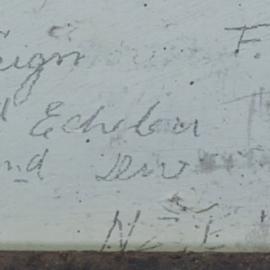 eign F.
d Echelon
nd Div
N.Z.E